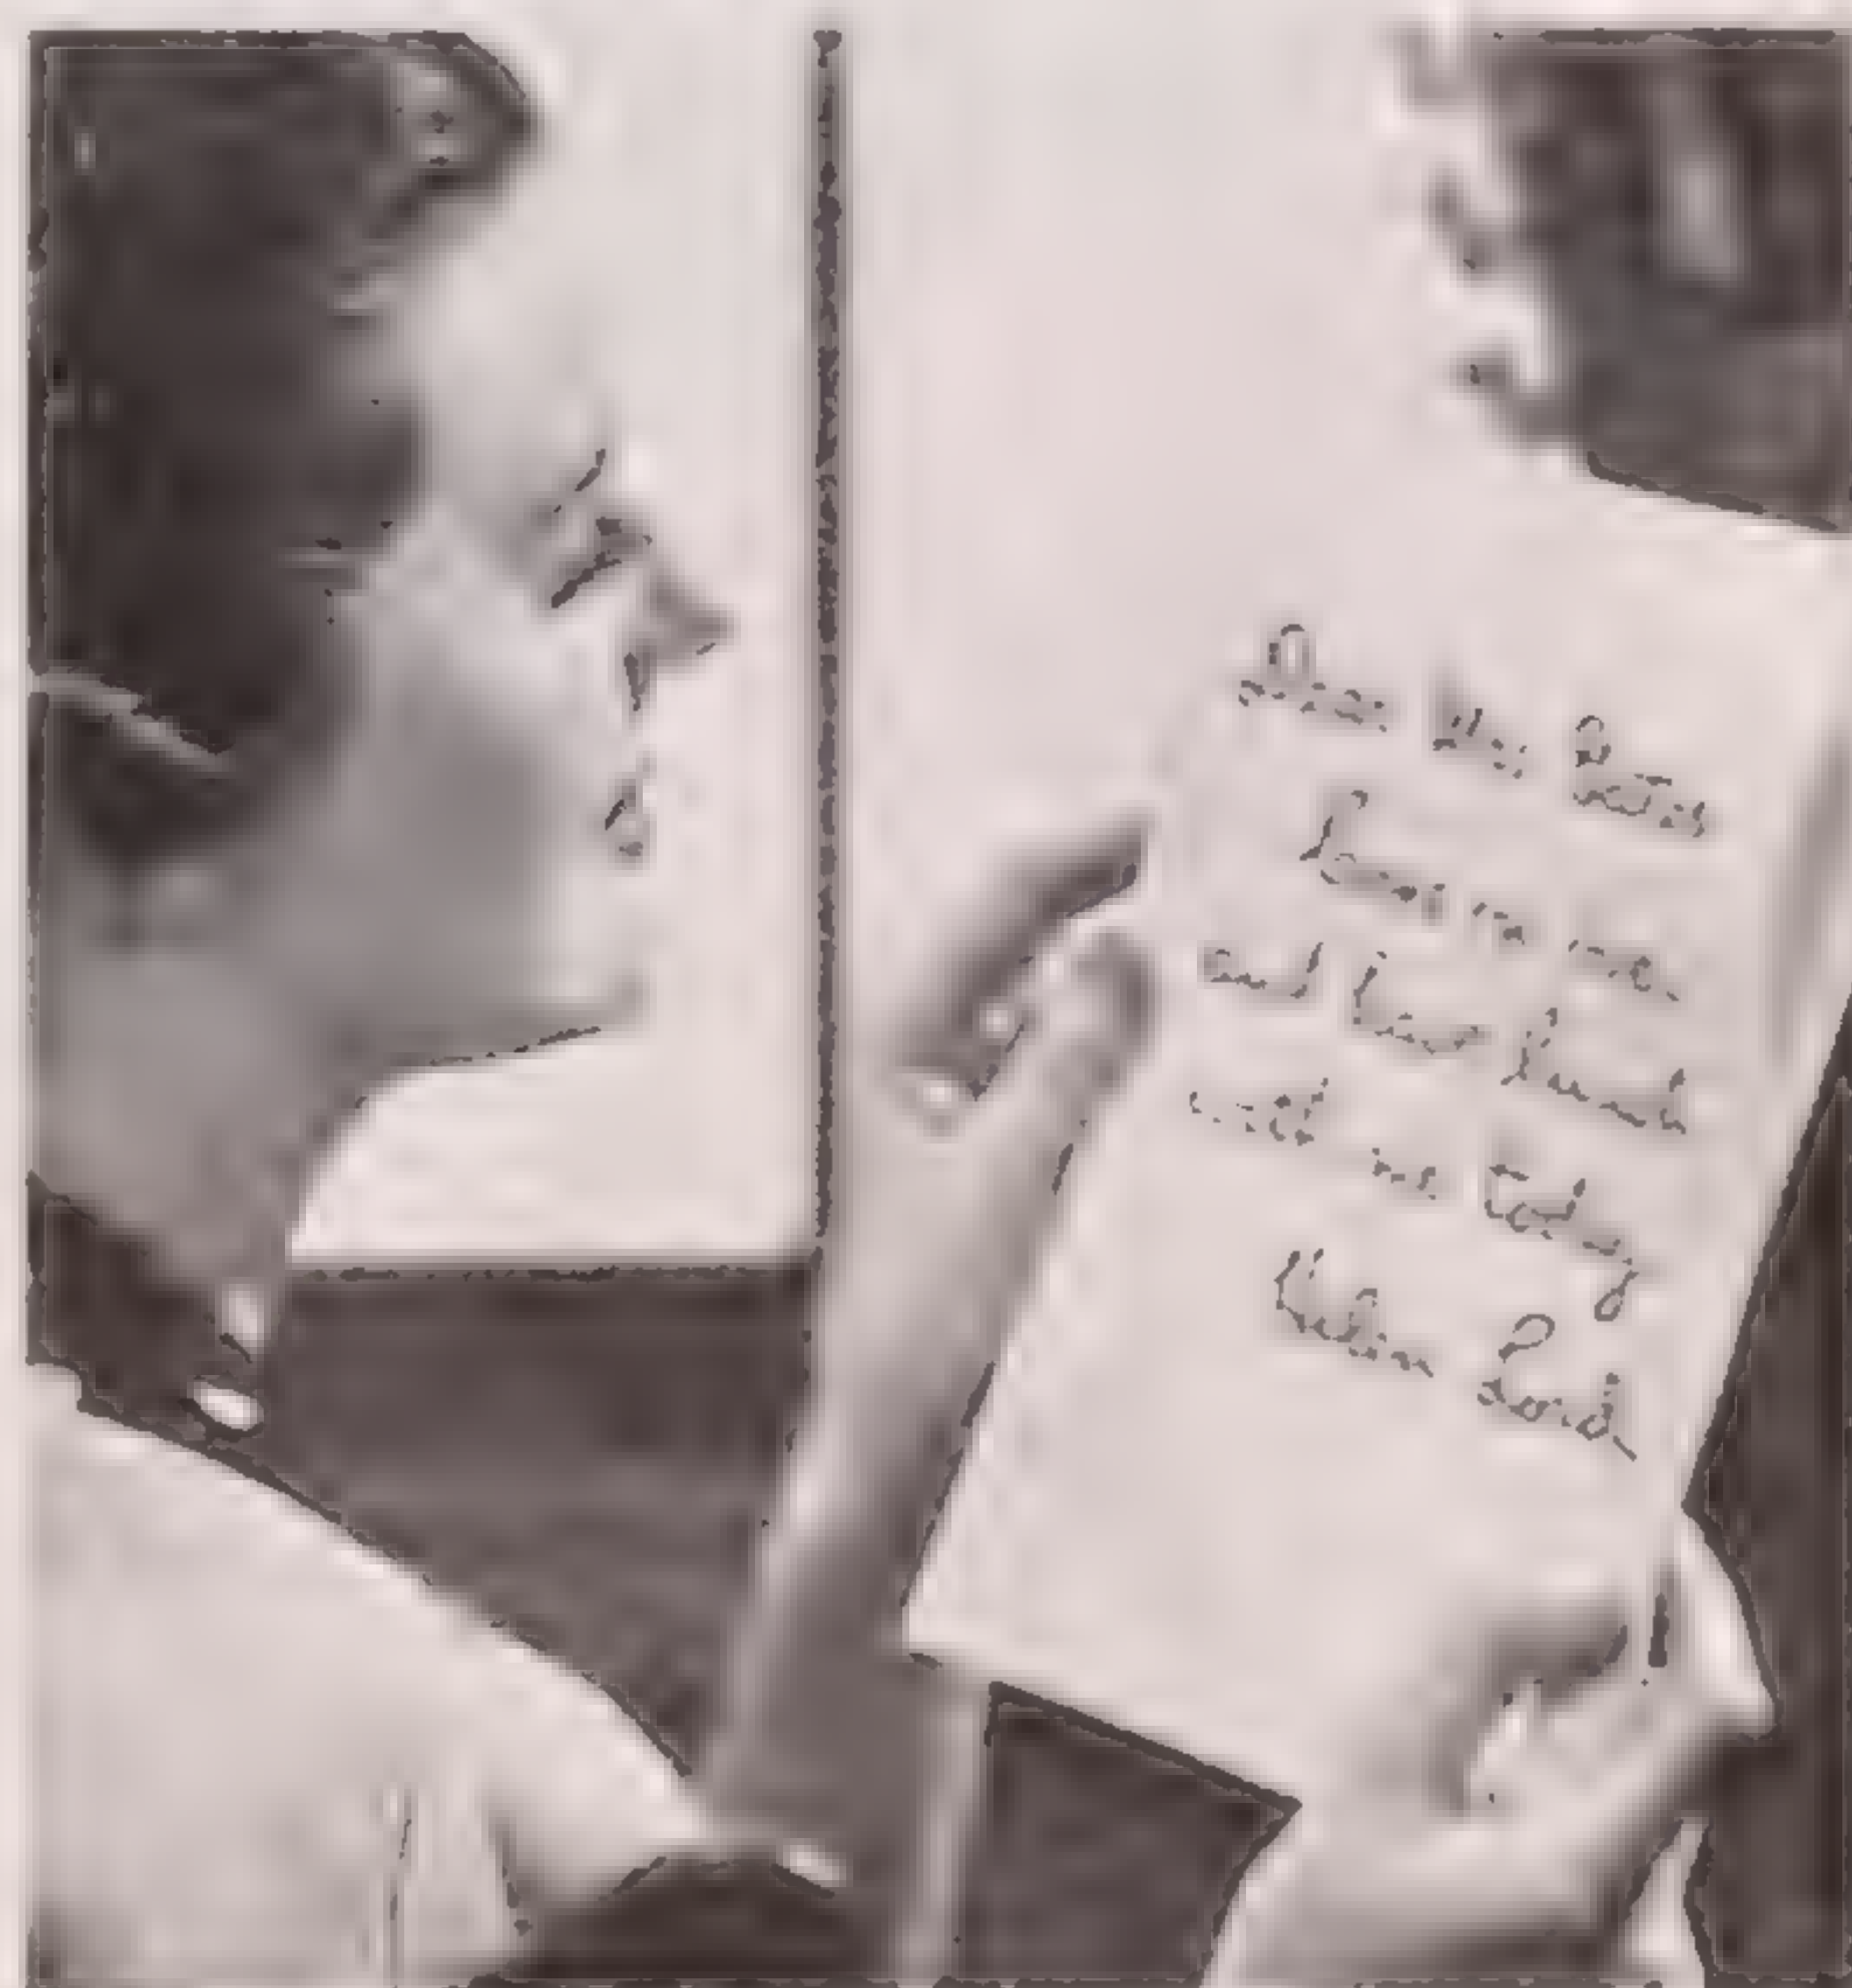 Dear Mrs Bates
Come to me
and have lunch
with me today
Helen Bond